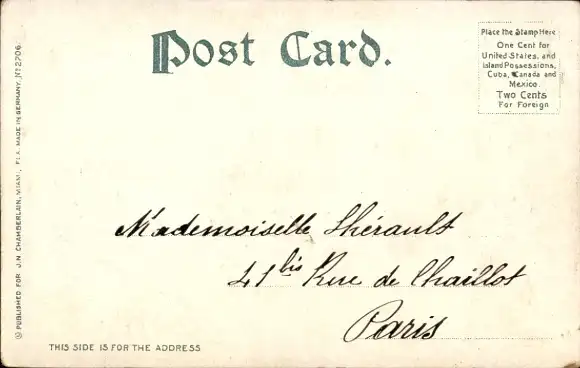 Post Card.
Place the Stamp Here
One Cent for
United States, and
Island Possessions,
Cuba, Canada and
Mexico.
Two Cents
For Foreign
Mademoiselle Shérault
41 bis Rue de Chaillot
Paris
THIS SIDE IS FOR THE ADDRESS
PUBLISHED FOR J.N. CHAMBERLAIN, MIAMI, FLA. MADE IN GERMANY. Nº 2706.